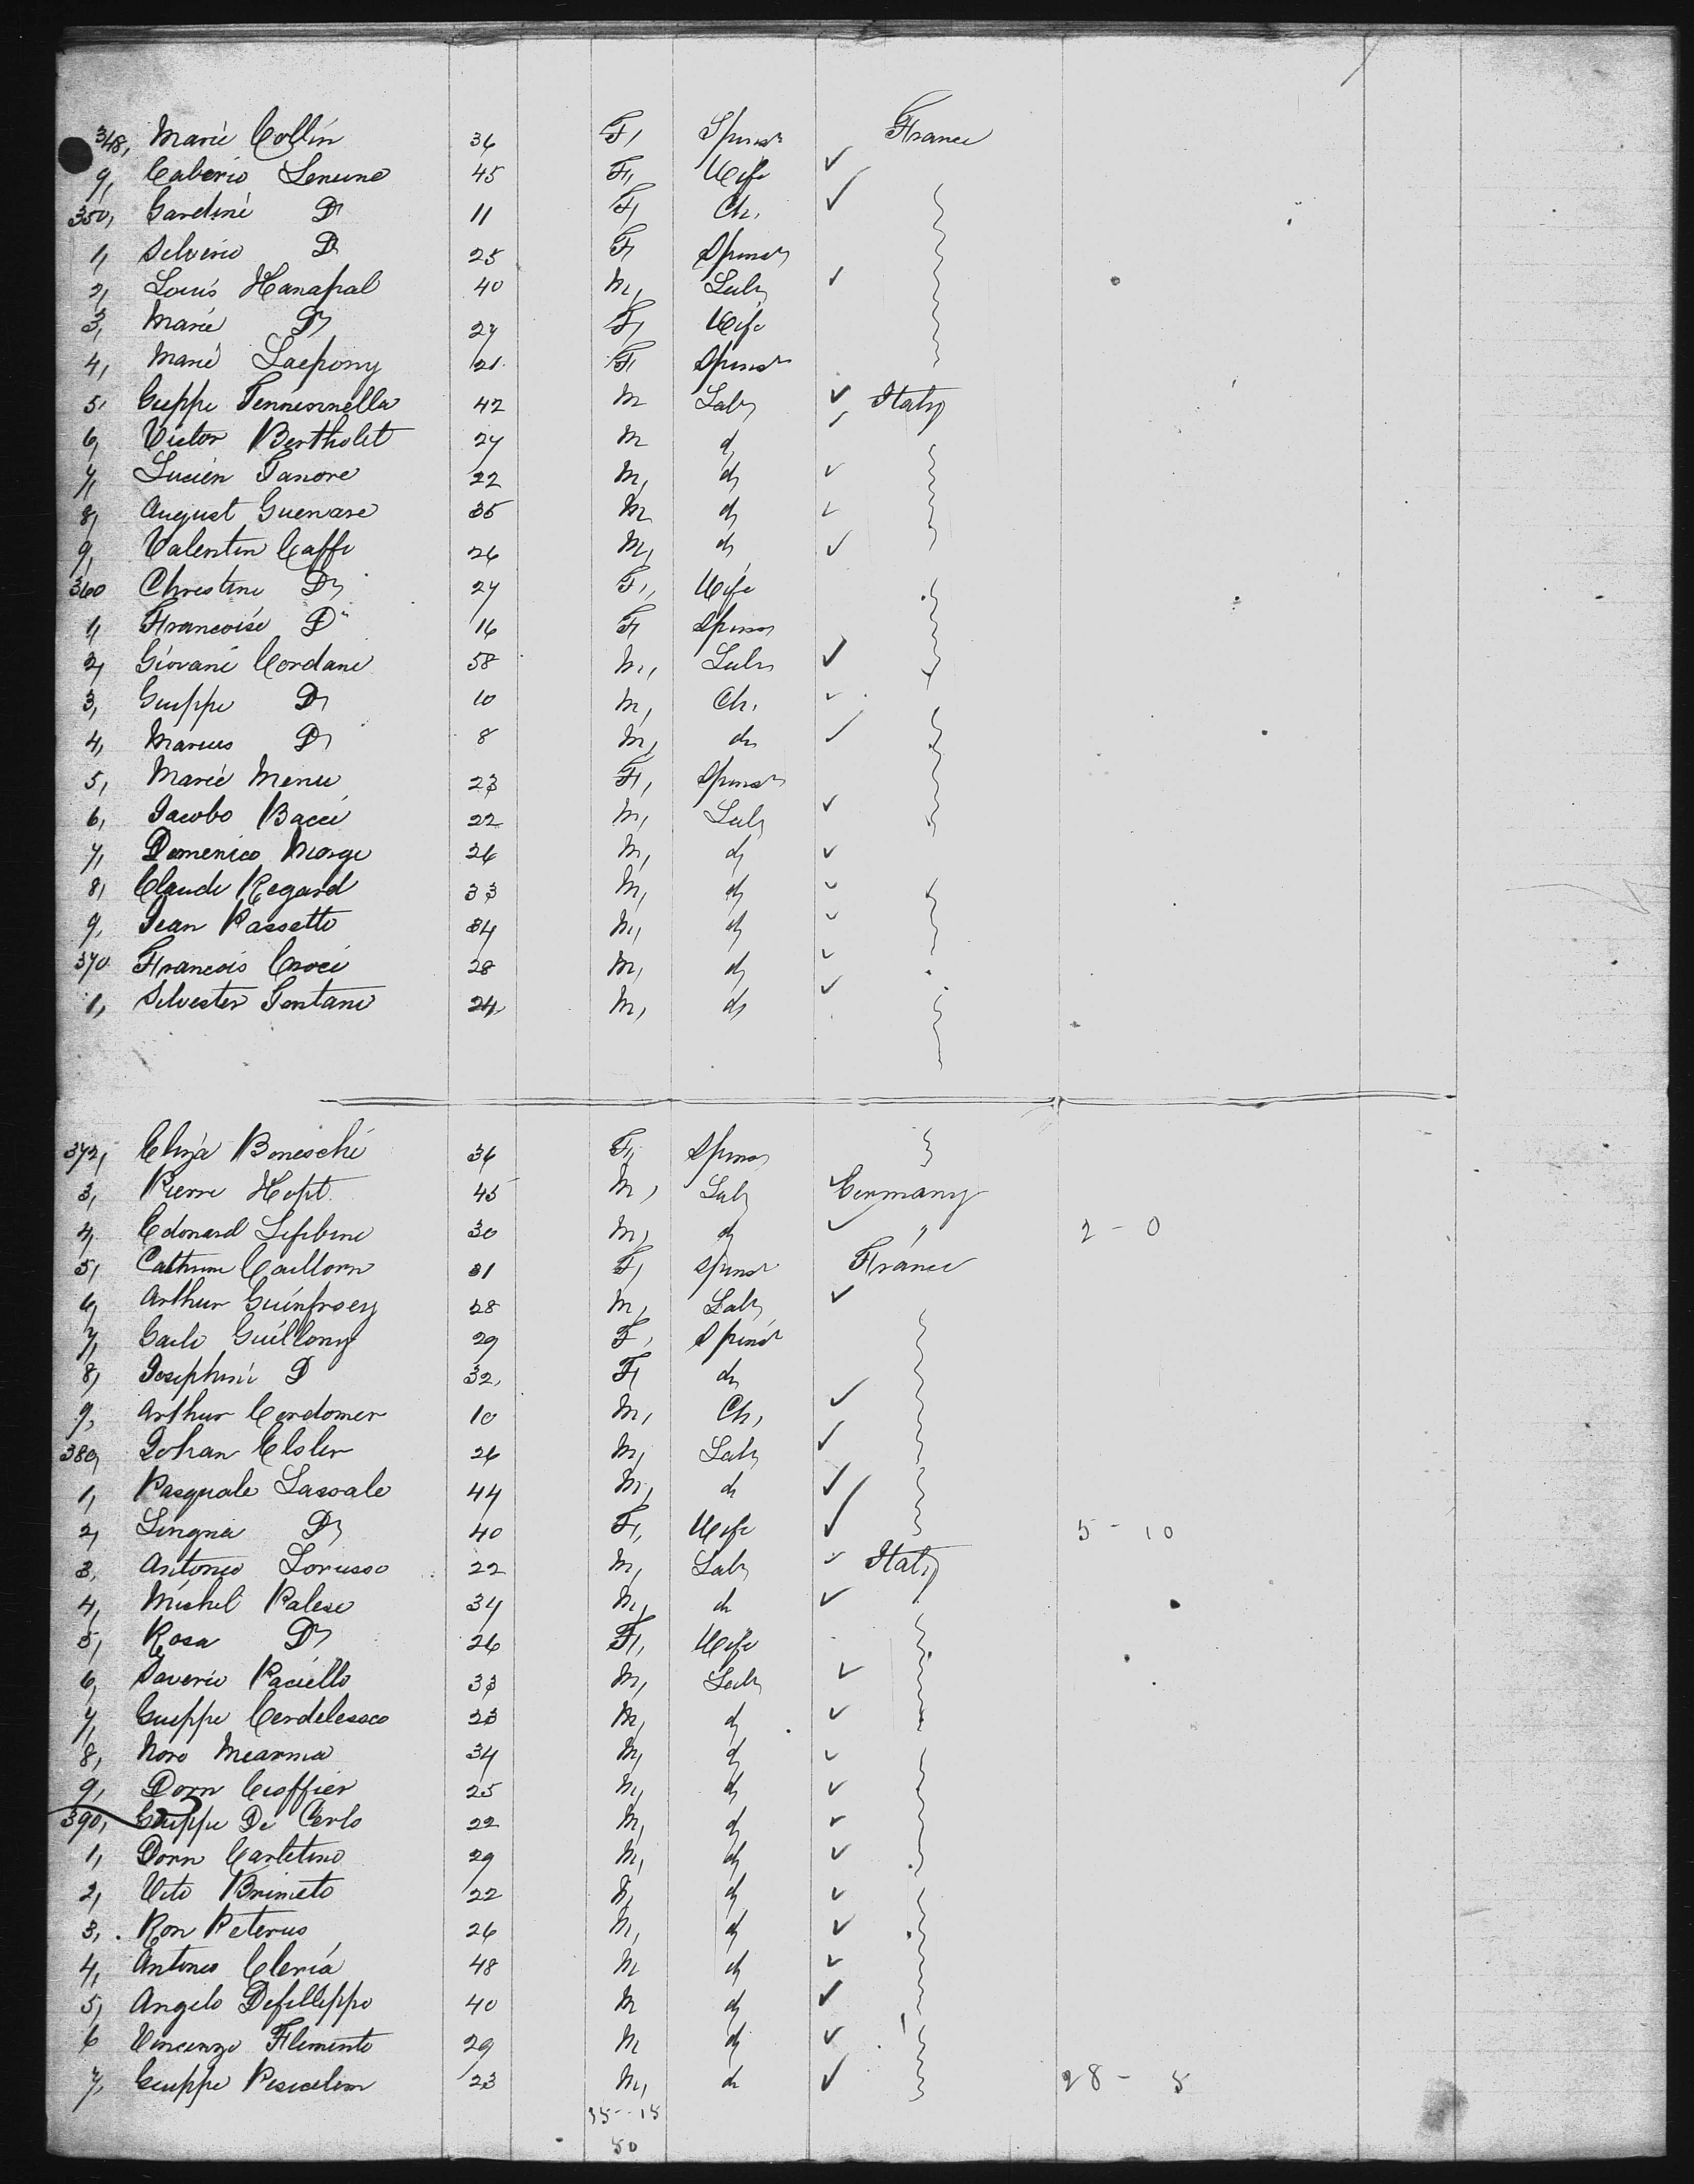 348, Marie Collin 36 F, Spinsr France
9, Caberio Lenune 45 F, Wife ✓
350, Gardine Do 11 F, Ch. ✓
1, Silverio Do 25 F, Spinsr
2, Louis Hanapal 40 M, Labr ✓
3, Marie Do 27 F, Wife
4, Marie Laepony 21 F, Spinsr
5, Guppe 42 M Labr ✓ Italy
6, Victor Bertholet 27 M do ✓
7, Lucien Tanore 22 M, do ✓
8, August Guenare 35 M do ✓
9, Valentin Caffi 26 M, do ✓
360 Christine Do 27 F, Wife
1, Francoise Do 16 F, Spinsr
2, Giovani Cordani 58 M, Labr ✓
3, Guppe Do 10 M, Ch. ✓
4, Marius Do 8 M, do ✓
5, Marie Menu 23 F, Spinsr
6, Jacobo Bacci 22 M, Labr ✓
7, Domenico Morge 26 M, do ✓
8, Claude Regard 33 M, do ✓
9, Jean Passetto 34 M, do ✓
370 Francois Croci 28 M, do ✓
1, Silvester Fontani 24 M, do ✓
372, Eliza Boneschi 36 F, Spinsr
3, Pierre Hopt 45 M, Labr Germany
4, Edouard Lefebine 30 M, do ✓ " 2 - 0
5, Cathrine Caillorn 31 F, Spinsr France
6, Arthur Guinfroey 28 M, Labr ✓
7, Guillony 29 F, Spinsr
8, Josephine D 32, F, do
9, Arthur Cordomer 10 M, Ch, ✓
380, Johan Elsler 26 M, Labr ✓
1, Pasquale Lassale 44 M, do ✓
2, Lingna Do 40 F, Wife ✓ 5 - 10
3, Antonio Lorusso 22 M, Labr ✓ Italy
4, Michel Palese 34 M, do ✓
5, Rosa Do 26 F, Wife
6, Saverio Paciello 33 M, Labr ✓
7, Guppe Cerdelessco 23 M, do ✓
8, Noro Mearma 34 M, do ✓
9, Dom Cioffier 25 M, do ✓
390, Guppe De Carlo 22 M, do ✓
1, Dom Carletino 29 M, do ✓
2, Vito Brineto 22 M, do ✓
3, Ron Peterus 26 M, do ✓
4, Antonio Cleria 48 M do ✓
5, Angelo Defilleppo 40 M do ✓
6 Vincenzo Flemento 29 M do ✓
7, Guppe 23 M, do ✓ 28 - 5
35--15
50